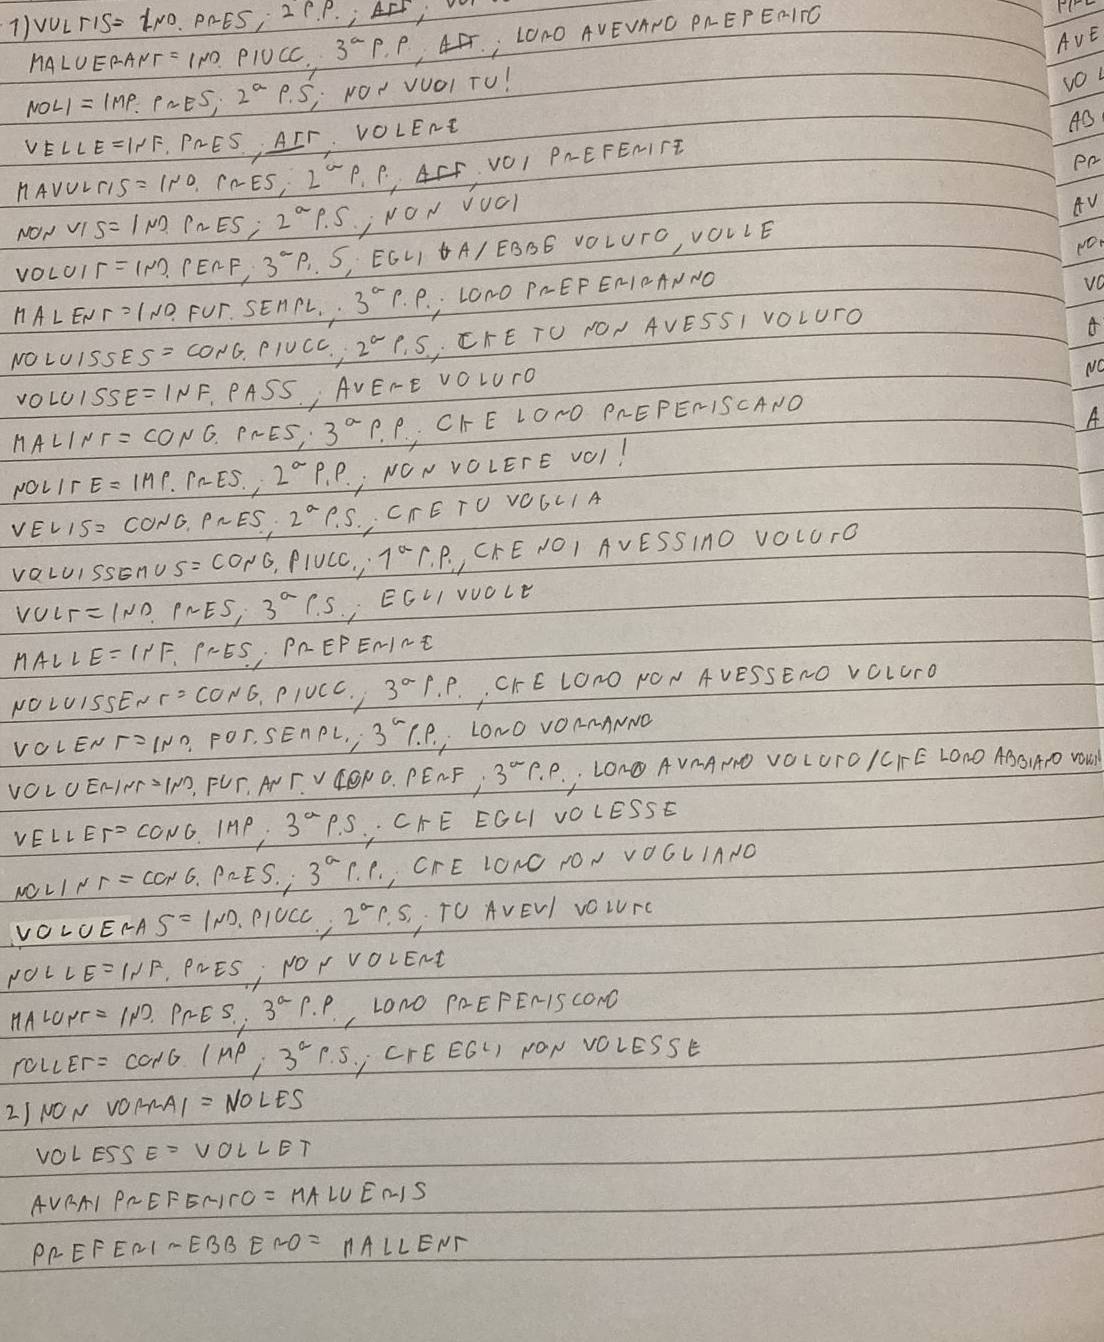 1) VULTIS= IND. PRES; 2 P.P.; ATT;
MALUERANT = IND. PIUCC.; 3ª P.P, ATT.; LORO AVEVANO PREFERITO
NOLI = IMP. PRES; 2ª P.S; NON VUOI TU!
VELLE = INF. PRES; ATT, VOLERE
MAVULTIS = IND. PRES; 2ª P.P, ATT, VOI PREFERITE
NON VIS = IND. PRES; 2ª P.S.; NON VUOI
VOLUIT = IND. PERF, 3ª P.S, EGLI HA/EBBE VOLUTO, VOLLE
MALENT = IND. FUT. SEMPL.; 3ª P.P.; LORO PREFERIRANNO
NOLUISSES = CONG. PIUCC.; 2ª P.S.; CHE TU NON AVESSI VOLUTO
VOLUISSE = INF. PASS.; AVERE VOLUTO
MALINT = CONG. PRES; 3ª P.P.; CHE LORO PREFERISCANO
NOLITE = IMP. PRES.; 2ª P.P.; NON VOLETE VOI!
VELIS = CONG. PRES; 2ª P.S.; CHE TU VOGLIA
VOLUISSEMUS = CONG. PIUCC.; 1ª P.P., CHE NOI AVESSIMO VOLUTO
VULT = IND. PRES; 3ª P.S.; EGLI VUOLE
MALLE = INF. PRES; PREFERIRE
NOLUISSENT = CONG. PIUCC.; 3ª P.P., CHE LORO NON AVESSERO VOLUTO
VOLENT = IND. FUT. SEMPL.; 3ª P.P.; LORO VORRANNO
VOLUERINT = IND. FUT. ANT. V CONG. PERF; 3ª P.P.; LORO AVRANNO VOLUTO/CHE LORO ABBIANO
VELLET = CONG. IMP; 3ª P.S.; CHE EGLI VOLESSE
NOLINT = CONG. PRES.; 3ª P.P., CHE LORO NON VOGLIANO
VOLUERAS = IND. PIUCC.; 2ª P.S; TU AVEVI VOLUTO
NOLLE = INF. PRES; NON VOLERE
MALUNT = IND. PRES.; 3ª P.P., LORO PREFERISCONO
NOLLET = CONG IMP; 3ª P.S.; CHE EGLI NON VOLESSE
2) NON VORRAI = NOLES
VOLESSE = VOLLET
AVRAI PREFERITO = MALUERIS
PREFERIREBBERO = MALLENT
AVE
VOL
AB
PR
AV
NON
VO
A
NO
A